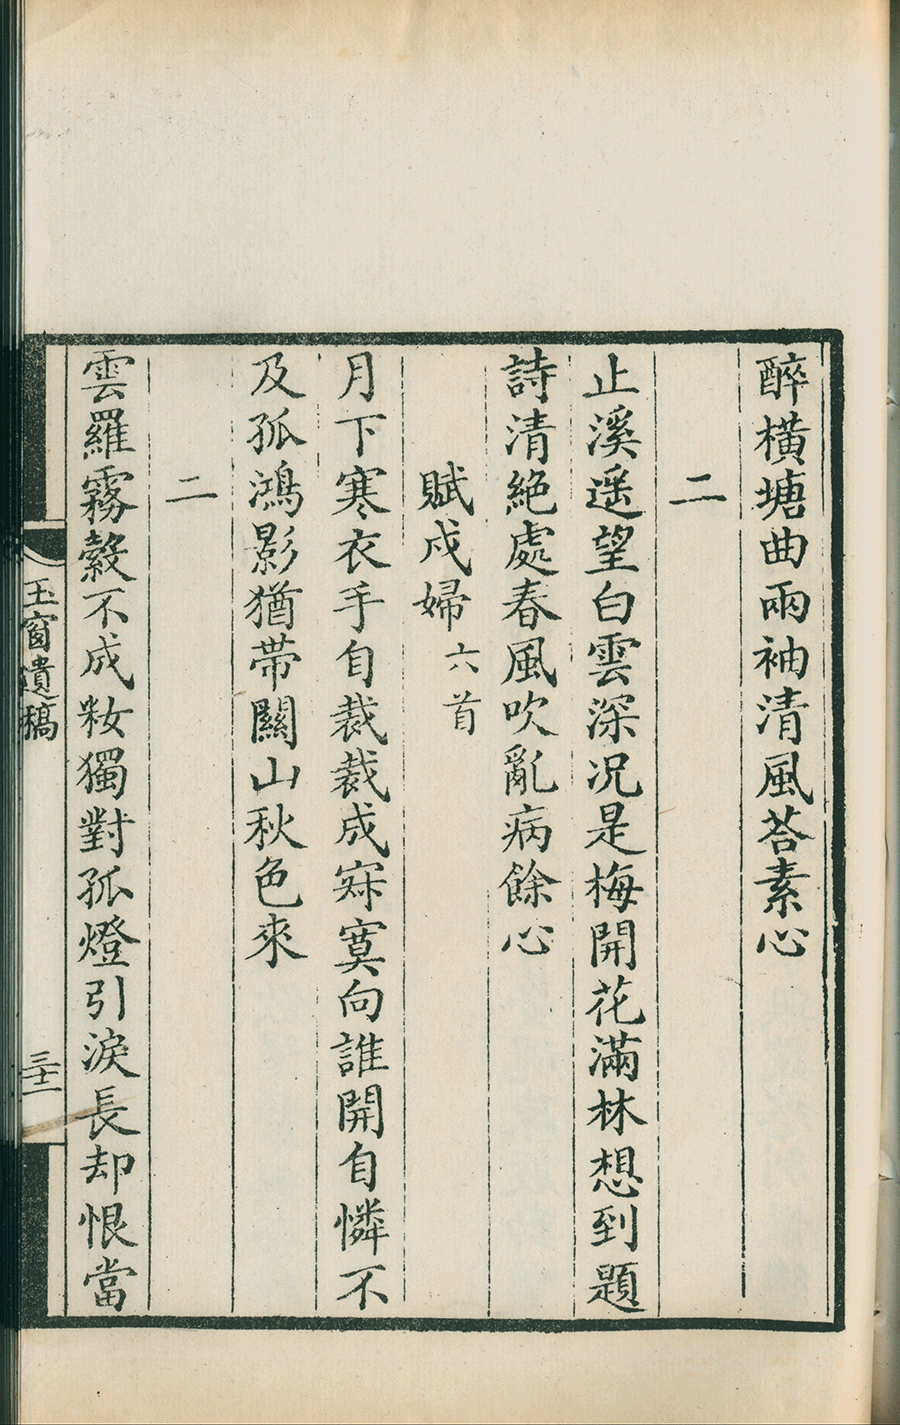 醉橫塘曲兩袖清風荅素心
二
止溪遥望白雲深况是梅開花滿林想到題
詩清絕處春風吹亂病餘心
賦戍婦六首
月下寒衣手自裁裁成寂寞向誰開自憐不
及孤鴻影猶帶關山秋色來
二
雲羅霧縠不成妝獨對孤燈引淚長却恨當
玉窗遺稿
三十一